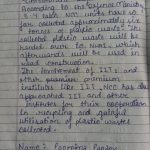 According to the expense
3-4 NCC units have so
far collected approximately six
tonnes of plastic waste. The
collected plastic waste will be
handed over to NHAI, which
afterwards will be used in
road construction.
The involvement of IIT and
other premier premium
institutes like IIT, NCC has also
approached IIT and other
institutes for their cooperation
in recycling and gainful
utilisation of plastic waste
collected.
Name:- Poornima Pandey